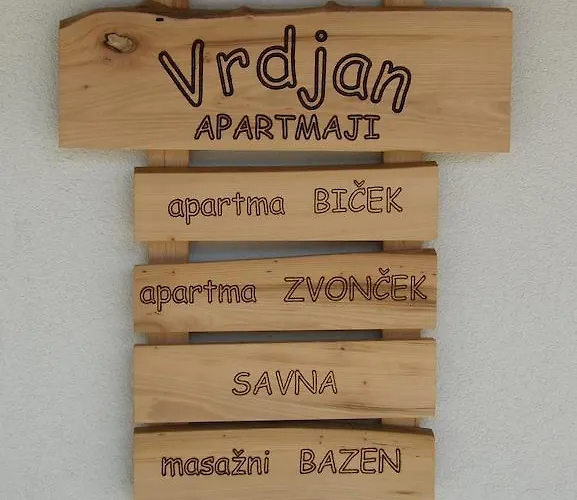 Vrdjan
APARTMAJI
apartma BIČEK
apartma ZVONČEK
SAVNA
masažni BAZEN